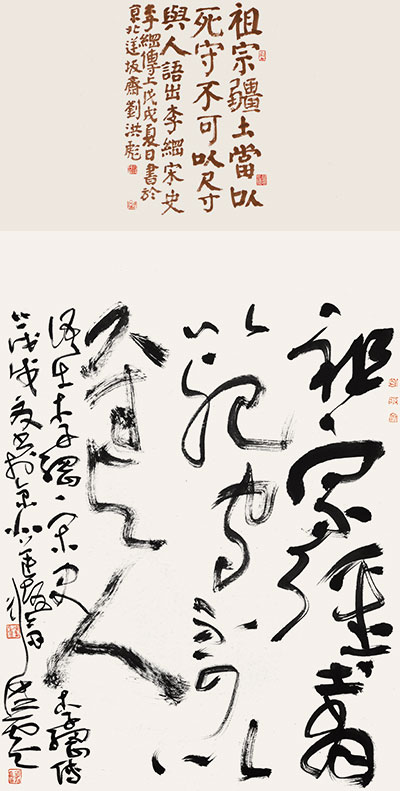 祖宗疆土當以
死守不可以尺寸
與人語出李綱宋史
李綱傳上戊戌夏日書於
京北逆坂齋劉洪彪
祖宗疆土當
以死守不可以
尺寸與人
語出李綱宋史李綱傳
上戊戌夏書於京北逆坂齋洪彪